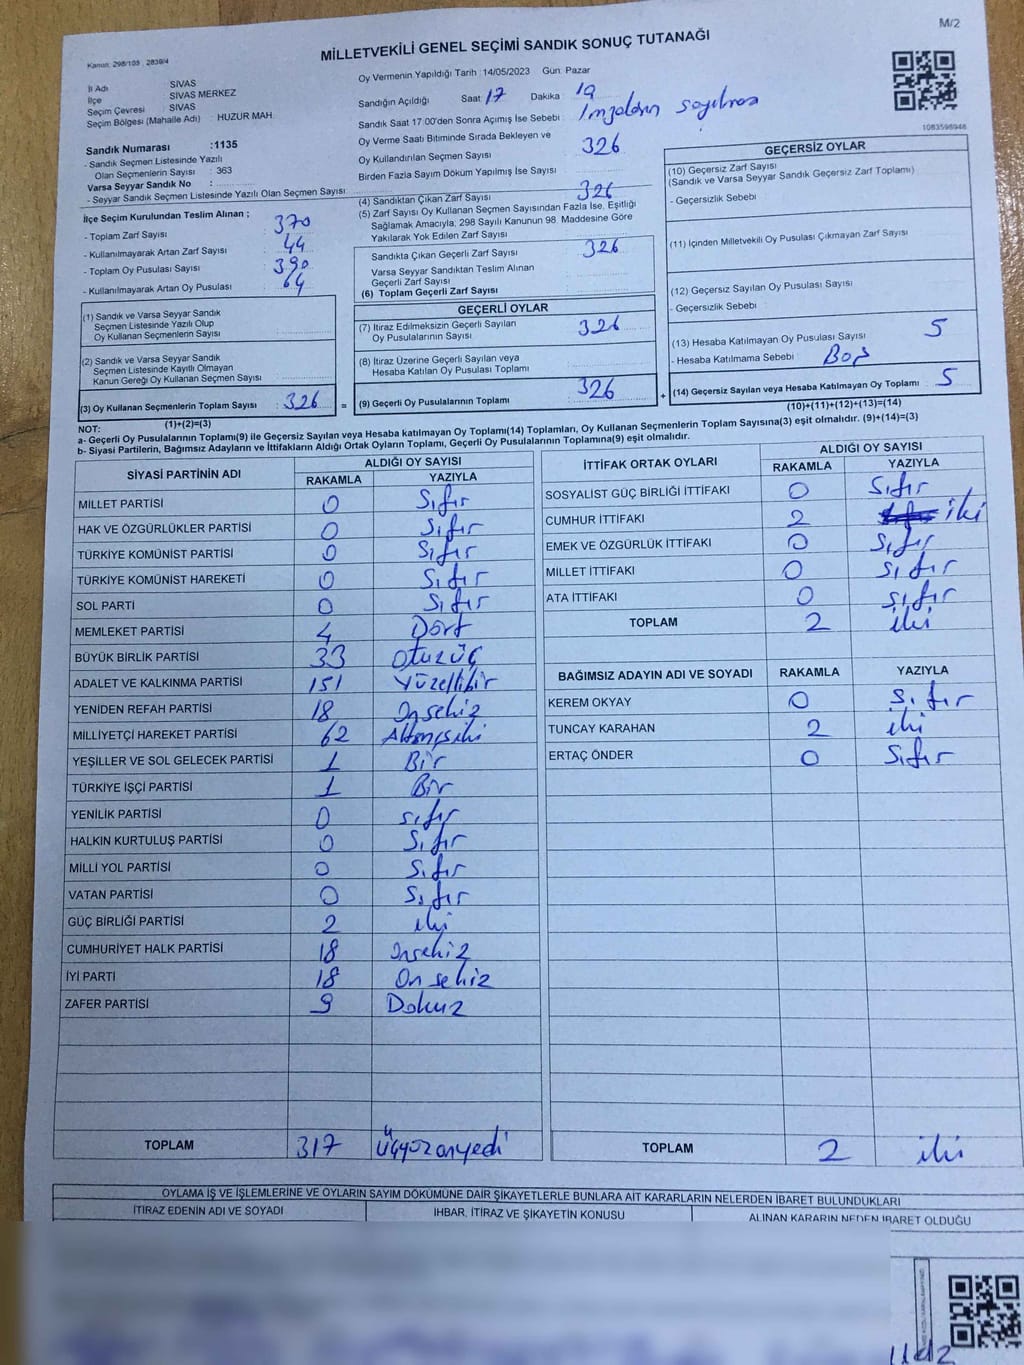 M/2
MİLLETVEKİLİ GENEL SEÇİMİ SANDIK SONUÇ TUTANAĞI
Kanun: 298/103 , 2839/4
İl Adı SİVAS
İlçe SİVAS MERKEZ
Seçim Çevresi : SİVAS
Seçim Bölgesi (Mahalle Adı) : HUZUR MAH.
Sandık Numarası :1135
- Sandık Seçmen Listesinde Yazılı
Olan Seçmenlerin Sayısı : 363
Varsa Seyyar Sandık No :
- Seyyar Sandık Seçmen Listesinde Yazılı Olan Seçmen Sayısı:
Oy Vermenin Yapıldığı Tarih :14/05/2023 Gün: Pazar
Sandığın Açıldığı Saat 17 Dakika 19
Sandık Saat 17:00'den Sonra Açımış İse Sebebi : İmzaların sayılması
Oy Verme Saati Bitiminde Sırada Bekleyen ve
Oy Kullandırılan Seçmen Sayısı 326
Birden Fazla Sayım Döküm Yapılmış İse Sayısı
1083598948
İlçe Seçim Kurulundan Teslim Alınan ;
- Toplam Zarf Sayısı : 370
- Kullanılmayarak Artan Zarf Sayısı : 44
- Toplam Oy Pusulası Sayısı : 390
- Kullanılmayarak Artan Oy Pusulası : 64
(1) Sandık ve Varsa Seyyar Sandık
Seçmen Listesinde Yazılı Olup
Oy Kullanan Seçmenlerin Sayısı
(2) Sandık ve Varsa Seyyar Sandık
Seçmen Listesinde Kayıtlı Olmayan
Kanun Gereği Oy Kullanan Seçmen Sayısı
(3) Oy Kullanan Seçmenlerin Toplam Sayısı : 326 =
(1)+(2)=(3)
(4) Sandıktan Çıkan Zarf Sayısı 326
(5) Zarf Sayısı Oy Kullanan Seçmen Sayısından Fazla İse, Eşitliği
Sağlamak Amacıyla, 298 Sayılı Kanunun 98. Maddesine Göre
Yakılarak Yok Edilen Zarf Sayısı
Sandıkta Çıkan Geçerli Zarf Sayısı 326
Varsa Seyyar Sandıktan Teslim Alınan
Geçerli Zarf Sayısı
(6) Toplam Geçerli Zarf Sayısı
GEÇERLİ OYLAR
(7) İtiraz Edilmeksizin Geçerli Sayılan
Oy Pusulalarının Sayısı 326
(8) İtiraz Üzerine Geçerli Sayılan veya
Hesaba Katılan Oy Pusulası Toplamı
(9) Geçerli Oy Pusulalarının Toplamı 326 +
GEÇERSİZ OYLAR
(10) Geçersiz Zarf Sayısı
(Sandık ve Varsa Seyyar Sandık Geçersiz Zarf Toplamı)
- Geçersizlik Sebebi
(11) İçinden Milletvekili Oy Pusulası Çıkmayan Zarf Sayısı
(12) Geçersiz Sayılan Oy Pusulası Sayısı
- Geçersizlik Sebebi :
(13) Hesaba Katılmayan Oy Pusulası Sayısı 5
- Hesaba Katılmama Sebebi Boş
(14) Geçersiz Sayılan veya Hesaba Katılmayan Oy Toplamı 5
(10)+(11)+(12)+(13)=(14)
NOT:
a- Geçerli Oy Pusulasının Toplamı(9) ile Geçersiz Sayılan veya Hesaba Katılmayan Oy Toplamı(14) Toplamları, Oy Kullanan Seçmenlerin Toplam Sayısına(3) eşit olmalıdır. (9)+(14)=(3)
b- Siyasi Partilerin, Bağımsız Adayların ve İttifakların Aldığı Ortak Oyların Toplamı, Geçerli Oy Pusulalarının Toplamına(9) eşit olmalıdır.
SİYASİ PARTİNİN ADI ALDIĞI OY SAYISI
RAKAMLA YAZIYLA
MİLLET PARTİSİ 0 Sıfır
HAK VE ÖZGÜRLÜKLER PARTİSİ 0 Sıfır
TÜRKİYE KOMÜNİST PARTİSİ 0 Sıfır
TÜRKİYE KOMÜNİST HAREKETİ 0 Sıfır
SOL PARTİ 0 Sıfır
MEMLEKET PARTİSİ 4 Dört
BÜYÜK BİRLİK PARTİSİ 33 Otuzüç
ADALET VE KALKINMA PARTİSİ 151 Yüzellibir
YENİDEN REFAH PARTİSİ 18 Onsekiz
MİLLİYETÇİ HAREKET PARTİSİ 62 Altmışiki
YEŞİLLER VE SOL GELECEK PARTİSİ 1 Bir
TÜRKİYE İŞÇİ PARTİSİ 1 Bir
YENİLİK PARTİSİ 0 sıfır
HALKIN KURTULUŞ PARTİSİ 0 Sıfır
MİLLİ YOL PARTİSİ 0 Sıfır
VATAN PARTİSİ 0 Sıfır
GÜÇ BİRLİĞİ PARTİSİ 2 iki
CUMHURİYET HALK PARTİSİ 18 Onsekiz
İYİ PARTİ 18 On sekiz
ZAFER PARTİSİ 9 Dokuz
TOPLAM 317 Üçyüzonyedi
İTTİFAK ORTAK OYLARI ALDIĞI OY SAYISI
RAKAMLA YAZIYLA
SOSYALİST GÜÇ BİRLİĞİ İTTİFAKI 0 Sıfır
CUMHUR İTTİFAKI 2 iki
EMEK VE ÖZGÜRLÜK İTTİFAKI 0 Sıfır
MİLLET İTTİFAKI 0 Sıfır
ATA İTTİFAKI 0 sıfır
TOPLAM 2 iki
BAĞIMSIZ ADAYIN ADI VE SOYADI RAKAMLA YAZIYLA
KEREM OKYAY 0 Sıfır
TUNCAY KARAHAN 2 iki
ERTAÇ ÖNDER 0 Sıfır
TOPLAM 2 iki
OYLAMA İŞ VE İŞLEMLERİNE VE OYLARIN SAYIM DÖKÜMÜNE DAİR ŞİKAYETLERLE BUNLARA AİT KARARLARIN NELERDEN İBARET BULUNDUKLARI
İTİRAZ EDENİN ADI VE SOYADI İHBAR, İTİRAZ VE ŞİKAYETİN KONUSU ALINAN KARARIN NEDEN İBARET OLDUĞU